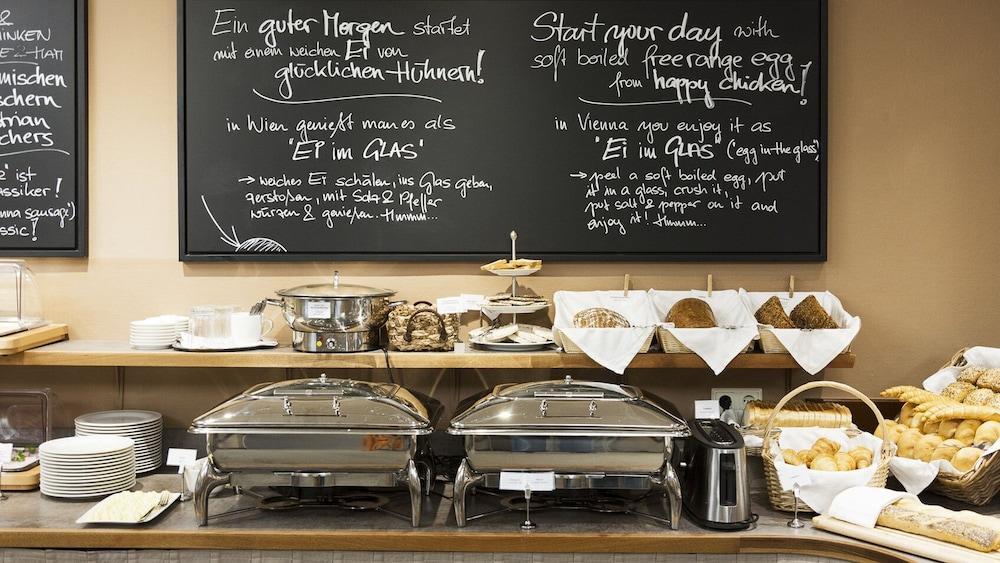 &
INKEN
mischen
schern
trian
chers
' ist
assiker!
nna sausage')
ssic!
Ein guter Morgen startet
mit einem weichen Ei von
glücklichen Hühnern!
in Wien genießt man es als
"EI im GLAS"
→ weiches Ei schälen, ins Glas geben,
zerstoßen, mit Salz & Pfeffer
würzen & genießen. Hmmm...
Start your day with
soft boiled freerange egg
from happy chicken!
in Vienna you enjoy it as
"Ei im GLAS" ('egg in the glass')
→ peel a soft boiled egg, put
it in a glass, crush it,
put salt & pepper on it and
enjoy it! Hmmm...